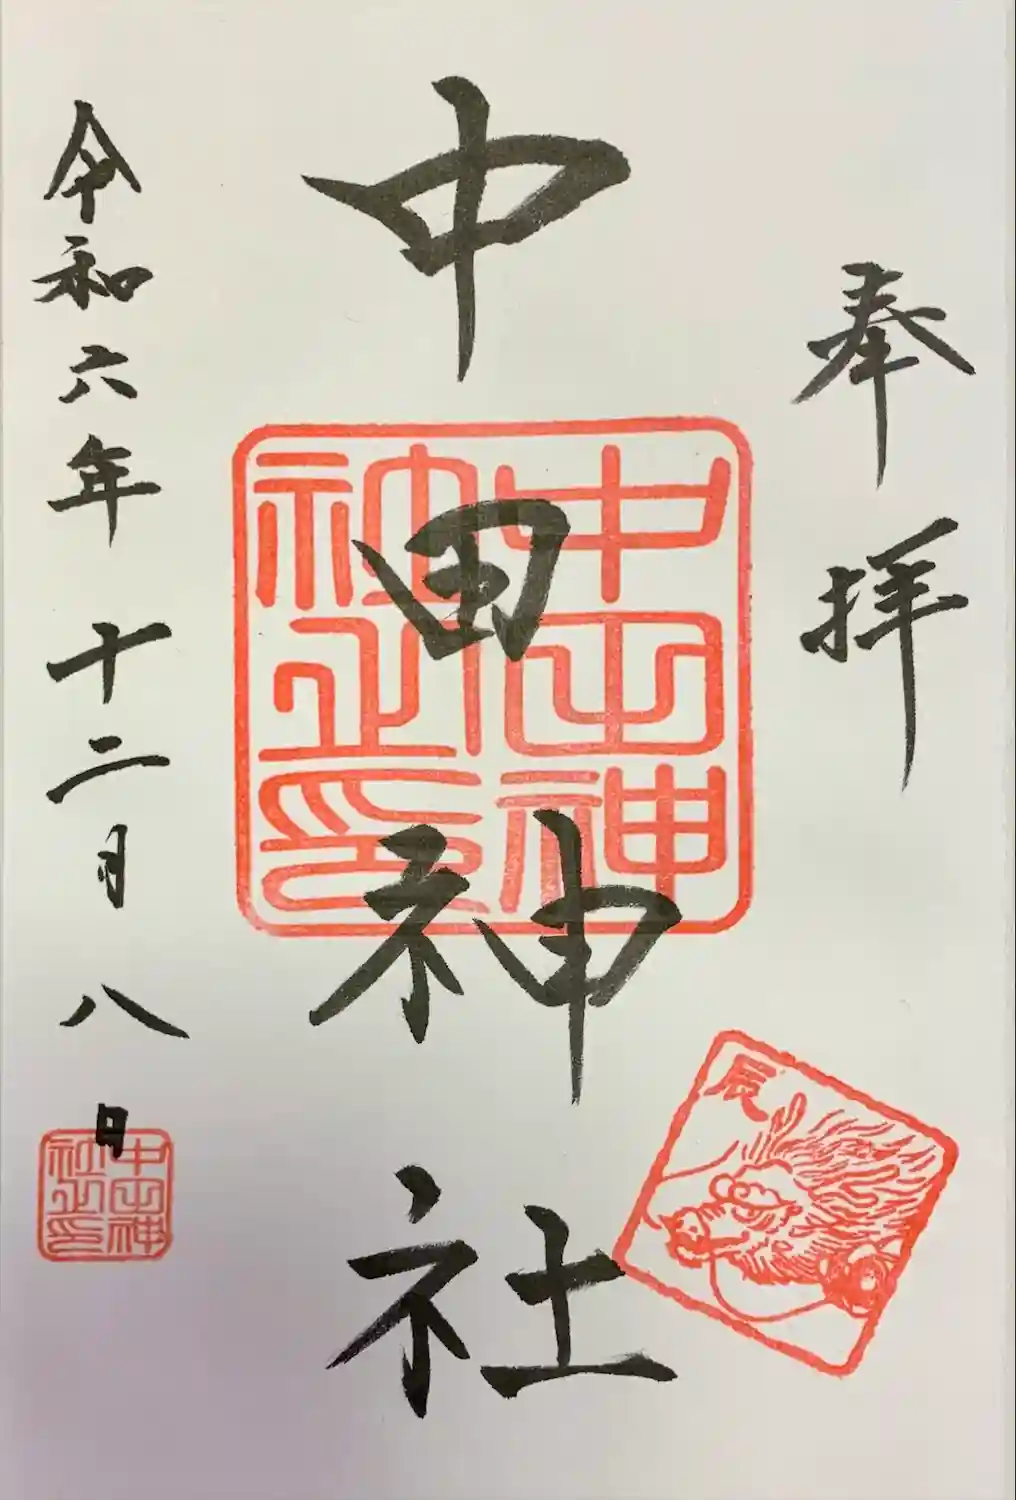 奉拝
中田神社
中田神
社之印
令和六年十二月八日
中田神
社之印
辰